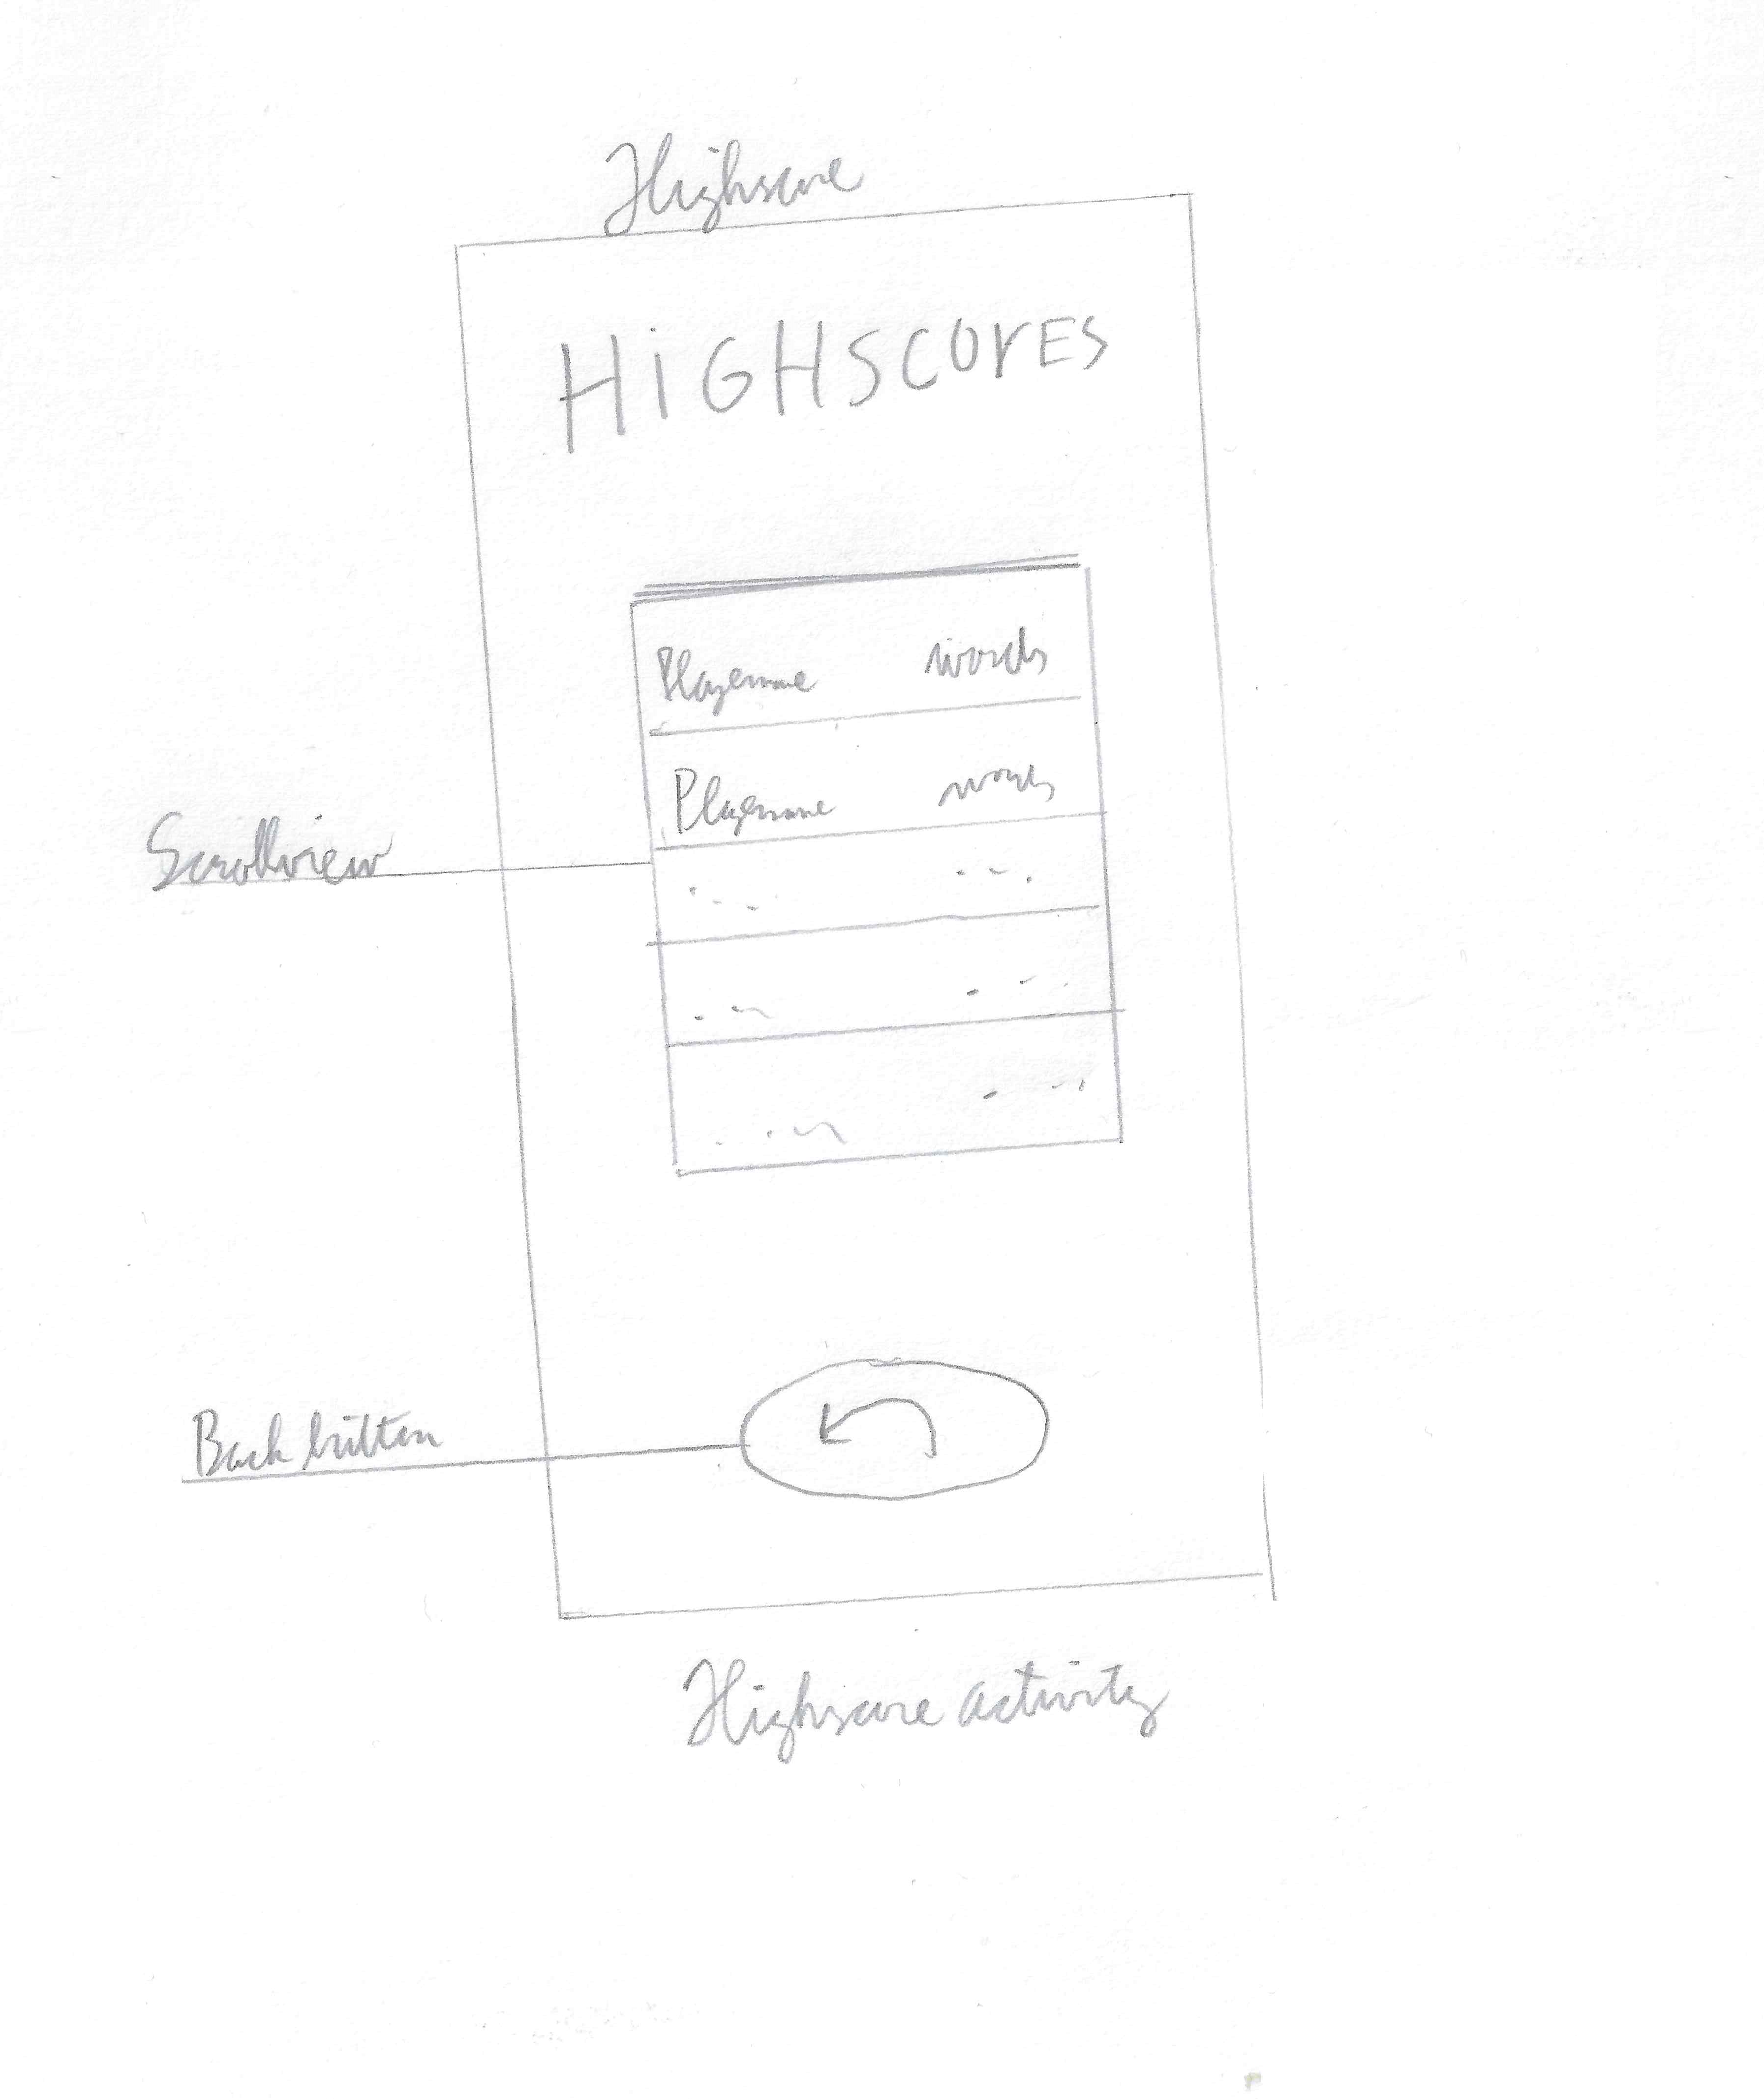 Highscore
HiGHSCOrES
Playername words
Playername words
Scrollview
Back button
Highscore activity